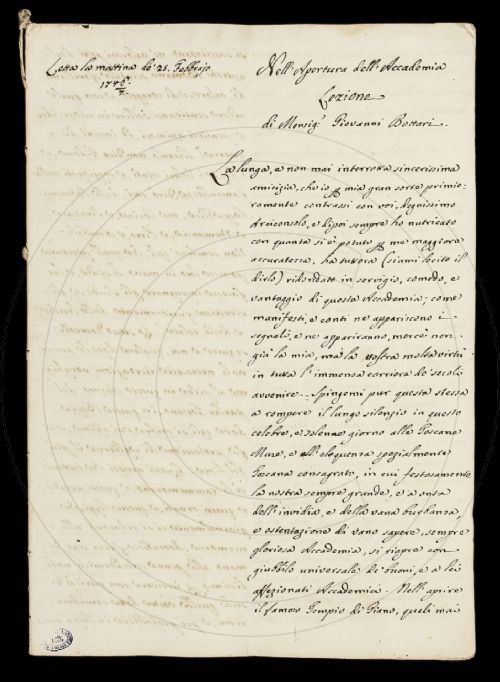 Letta la mattina de' 25. Febbrajo
174 6/7.
Nell'Apertura dell'Accademia
Lezione
di Monsig.r Giovanni Bottari.
La lunga, e non mai interrotta sincerissima
amicizia, che io ꝑ mia gran sorte primie:
ramente contrassi con voi, degnissimo
Arciconsolo, e dipoi sempre ho nutricato
con quanta si è potuto ꝑ me maggiore
accuratezza, ha tuttora (siami lecito il
dirlo) ridondato in servigio, comodo, e
vantaggio di questa Accademia; come
manifesti, e conti ne appariscono i
segnali, e ne appariranno, mercè non
già la mia, ma la vostra molta virtù
in tutta l'immensa carriera de' secoli
avvenire. Spingemi pur questa stessa
a rompere il lungo silenzio in questo
celebre, e solenne giorno alle Toscane
Muse, e all'eloquenza spezialmente
Toscana consagrato, in cui festosamente
la nostra sempre grande, e a onta
dell'invidia, e della vana burbanza,
e ostentazione di vano sapere, sempre
gloriosa Accademia, si riapre con
giubbilo universale de' buoni, e a lei
affezionati Accademici. Nell'aprire
il famoso Tempio di Giano, quali mai